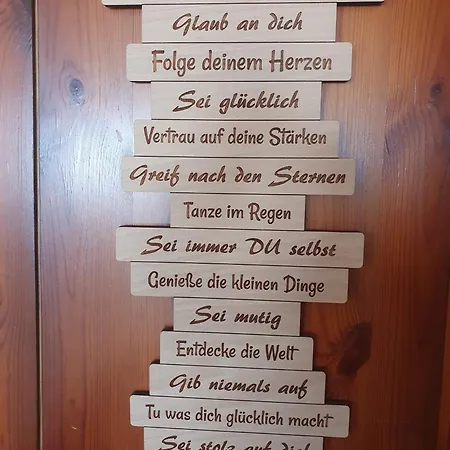 Glaub an dich
Folge deinem Herzen
Sei glücklich
Vertrau auf deine Stärken
Greif nach den Sternen
Tanze im Regen
Sei immer DU selbst
Genieße die kleinen Dinge
Sei mutig
Entdecke die Welt
Gib niemals auf
Tu was dich glücklich macht
Sei stolz auf dich